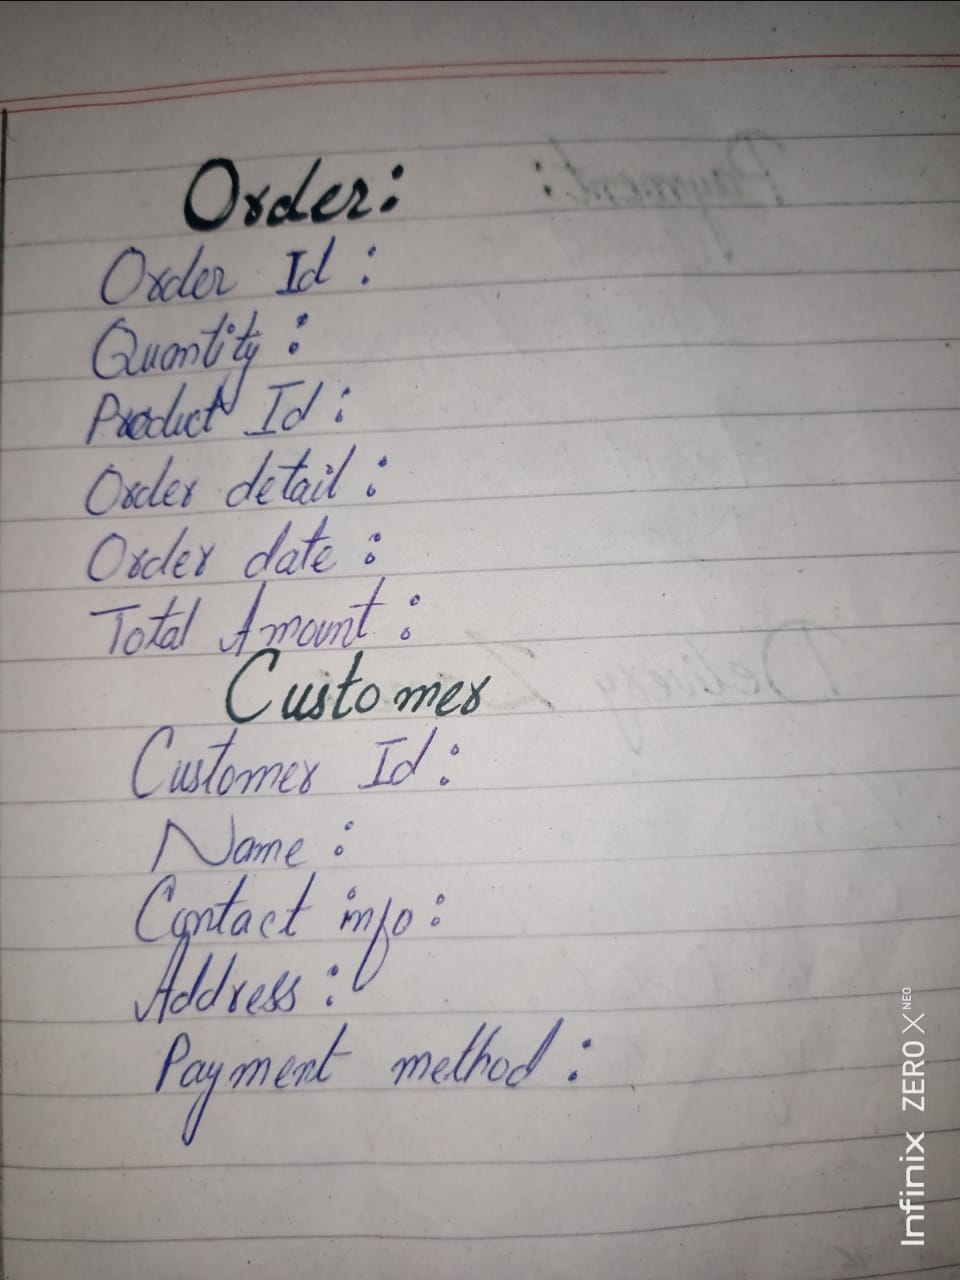 Order:
Order Id:
Quantity:
Product Id:
Order detail:
Order date:
Total Amount:
Customer
Customer Id:
Name:
Contact info:
Address:
Payment method:
Payment:
Delivery
Infinix ZERO X NEO